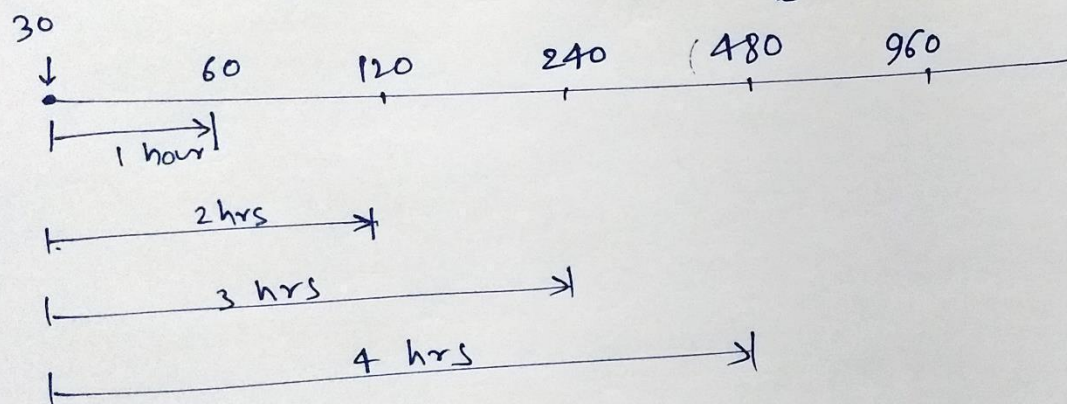 30
60 120 240 (480 960
1 hour
2 hrs
3 hrs
4 hrs